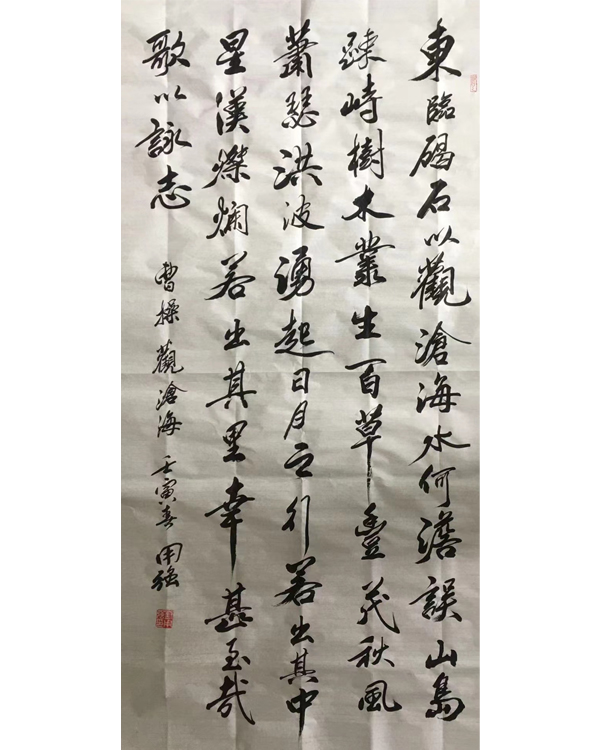 東臨碣石以觀滄海水何澹誤山島
踈峙樹木叢生百草豐茂秋風
蕭瑟洪波湧起日月之行若出其中
星漢燦爛若出其里幸甚至哉
歌以詠志
曹操觀滄海 壬寅春 用强